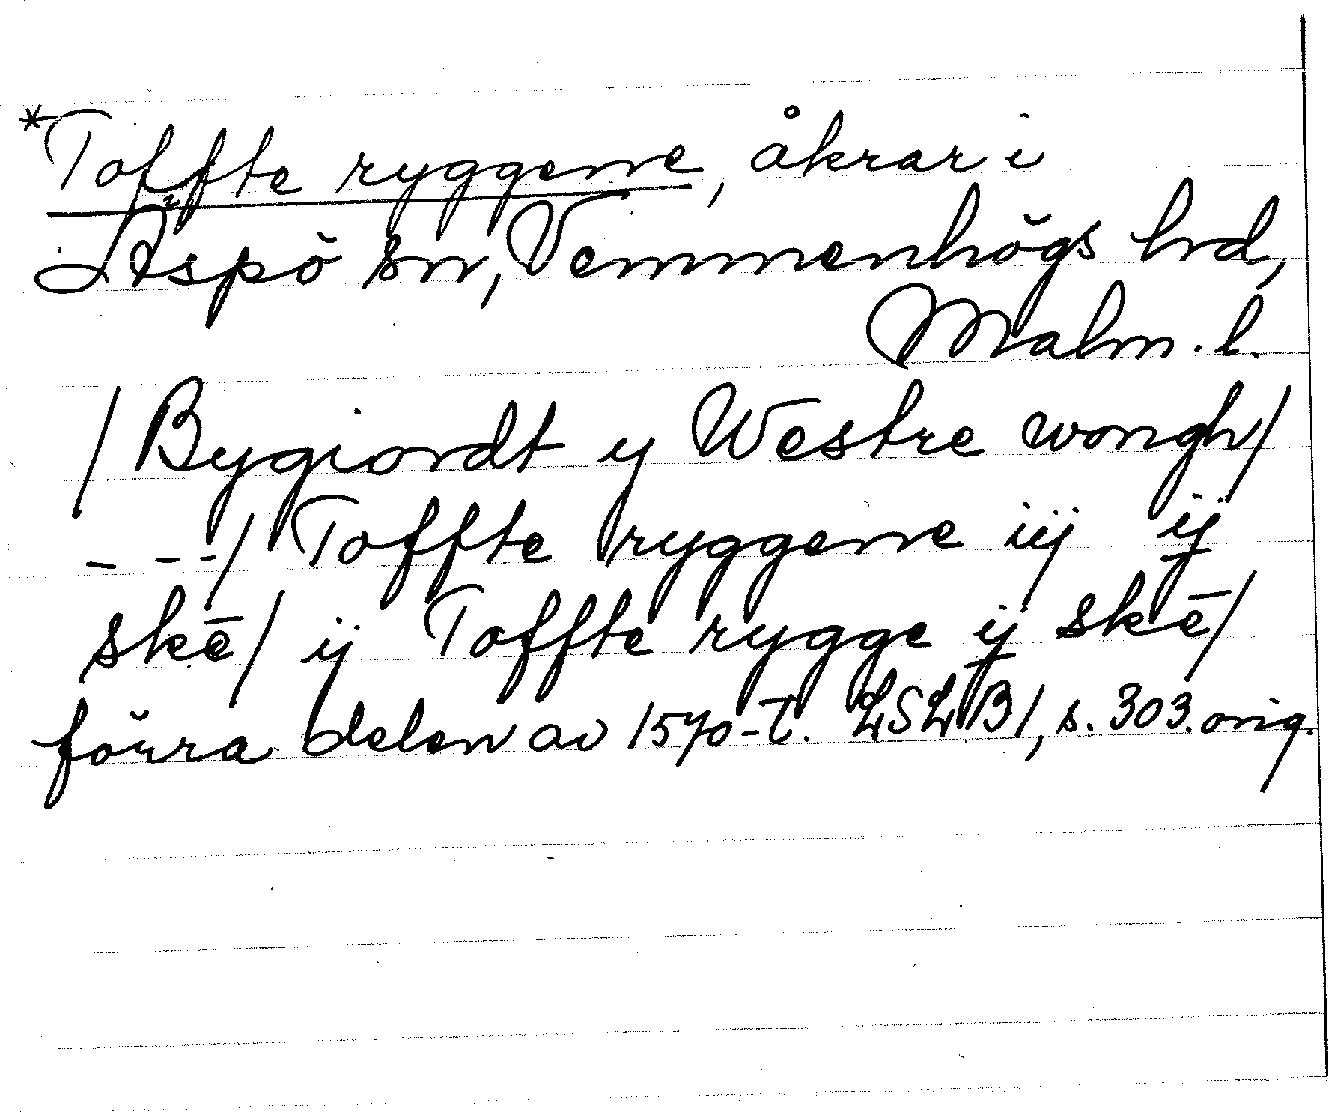 *Toffte ryggerne, åkrar i
Äspö sn, Vemmenhögs hrd,
Malm. l.
/ Bygiordt y Westre wongh/
– – –/ Toffte ryggerne iij ij
skē/ ij Toffte rygge ij skē/
förra delen av 1570-t. LSLB1, s. 303. orig.